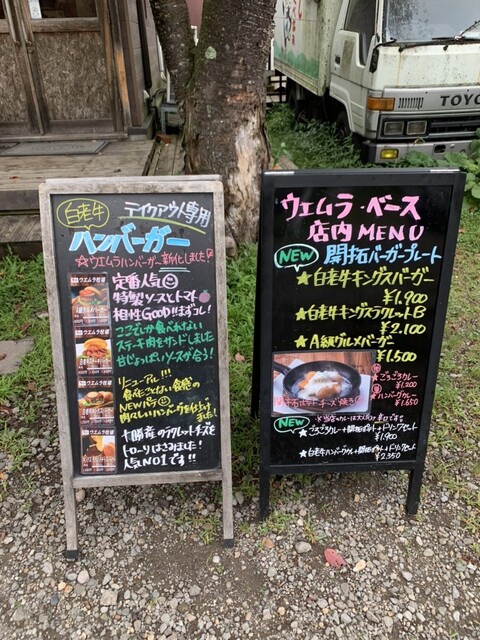 白老牛
テイクアウト専用
ハンバーガー
☆ウエムラハンバーガー新化しました!
定番人気
特製ソースとトマト
相性GOOD!!まずコレ!
ここでしか食べれない
ステーキ肉をサンドしました
甘じょっぱいソースが合う!
リニューアル!!!
食べたことない食感の
NEWパティ
ハンバーガーを仕上げ
ました!
十勝産のラクレットチーズを
トローリはさみました!
人気NO1です!!
ウエムラ牧場
ウエムラ牧場
ウエムラ牧場
ウエムラ牧場
ウエムラ・ベース
店内MENU
NEW 開拓バーガープレート
★白老牛キングスバーガー
¥1,900
★白老牛キングスラクレットB
¥2,100
★A級グルメバーガー
¥1,500
ごろごろカレー
¥1,200
ハンバーグカレー
¥1,650
NEW
★ごろごろカレー+開拓ポテト+ドリンクセット
¥1,900
★白老牛ハンバーグカレー+開拓ポテト+ドリンクセット
¥2,350
TOYO